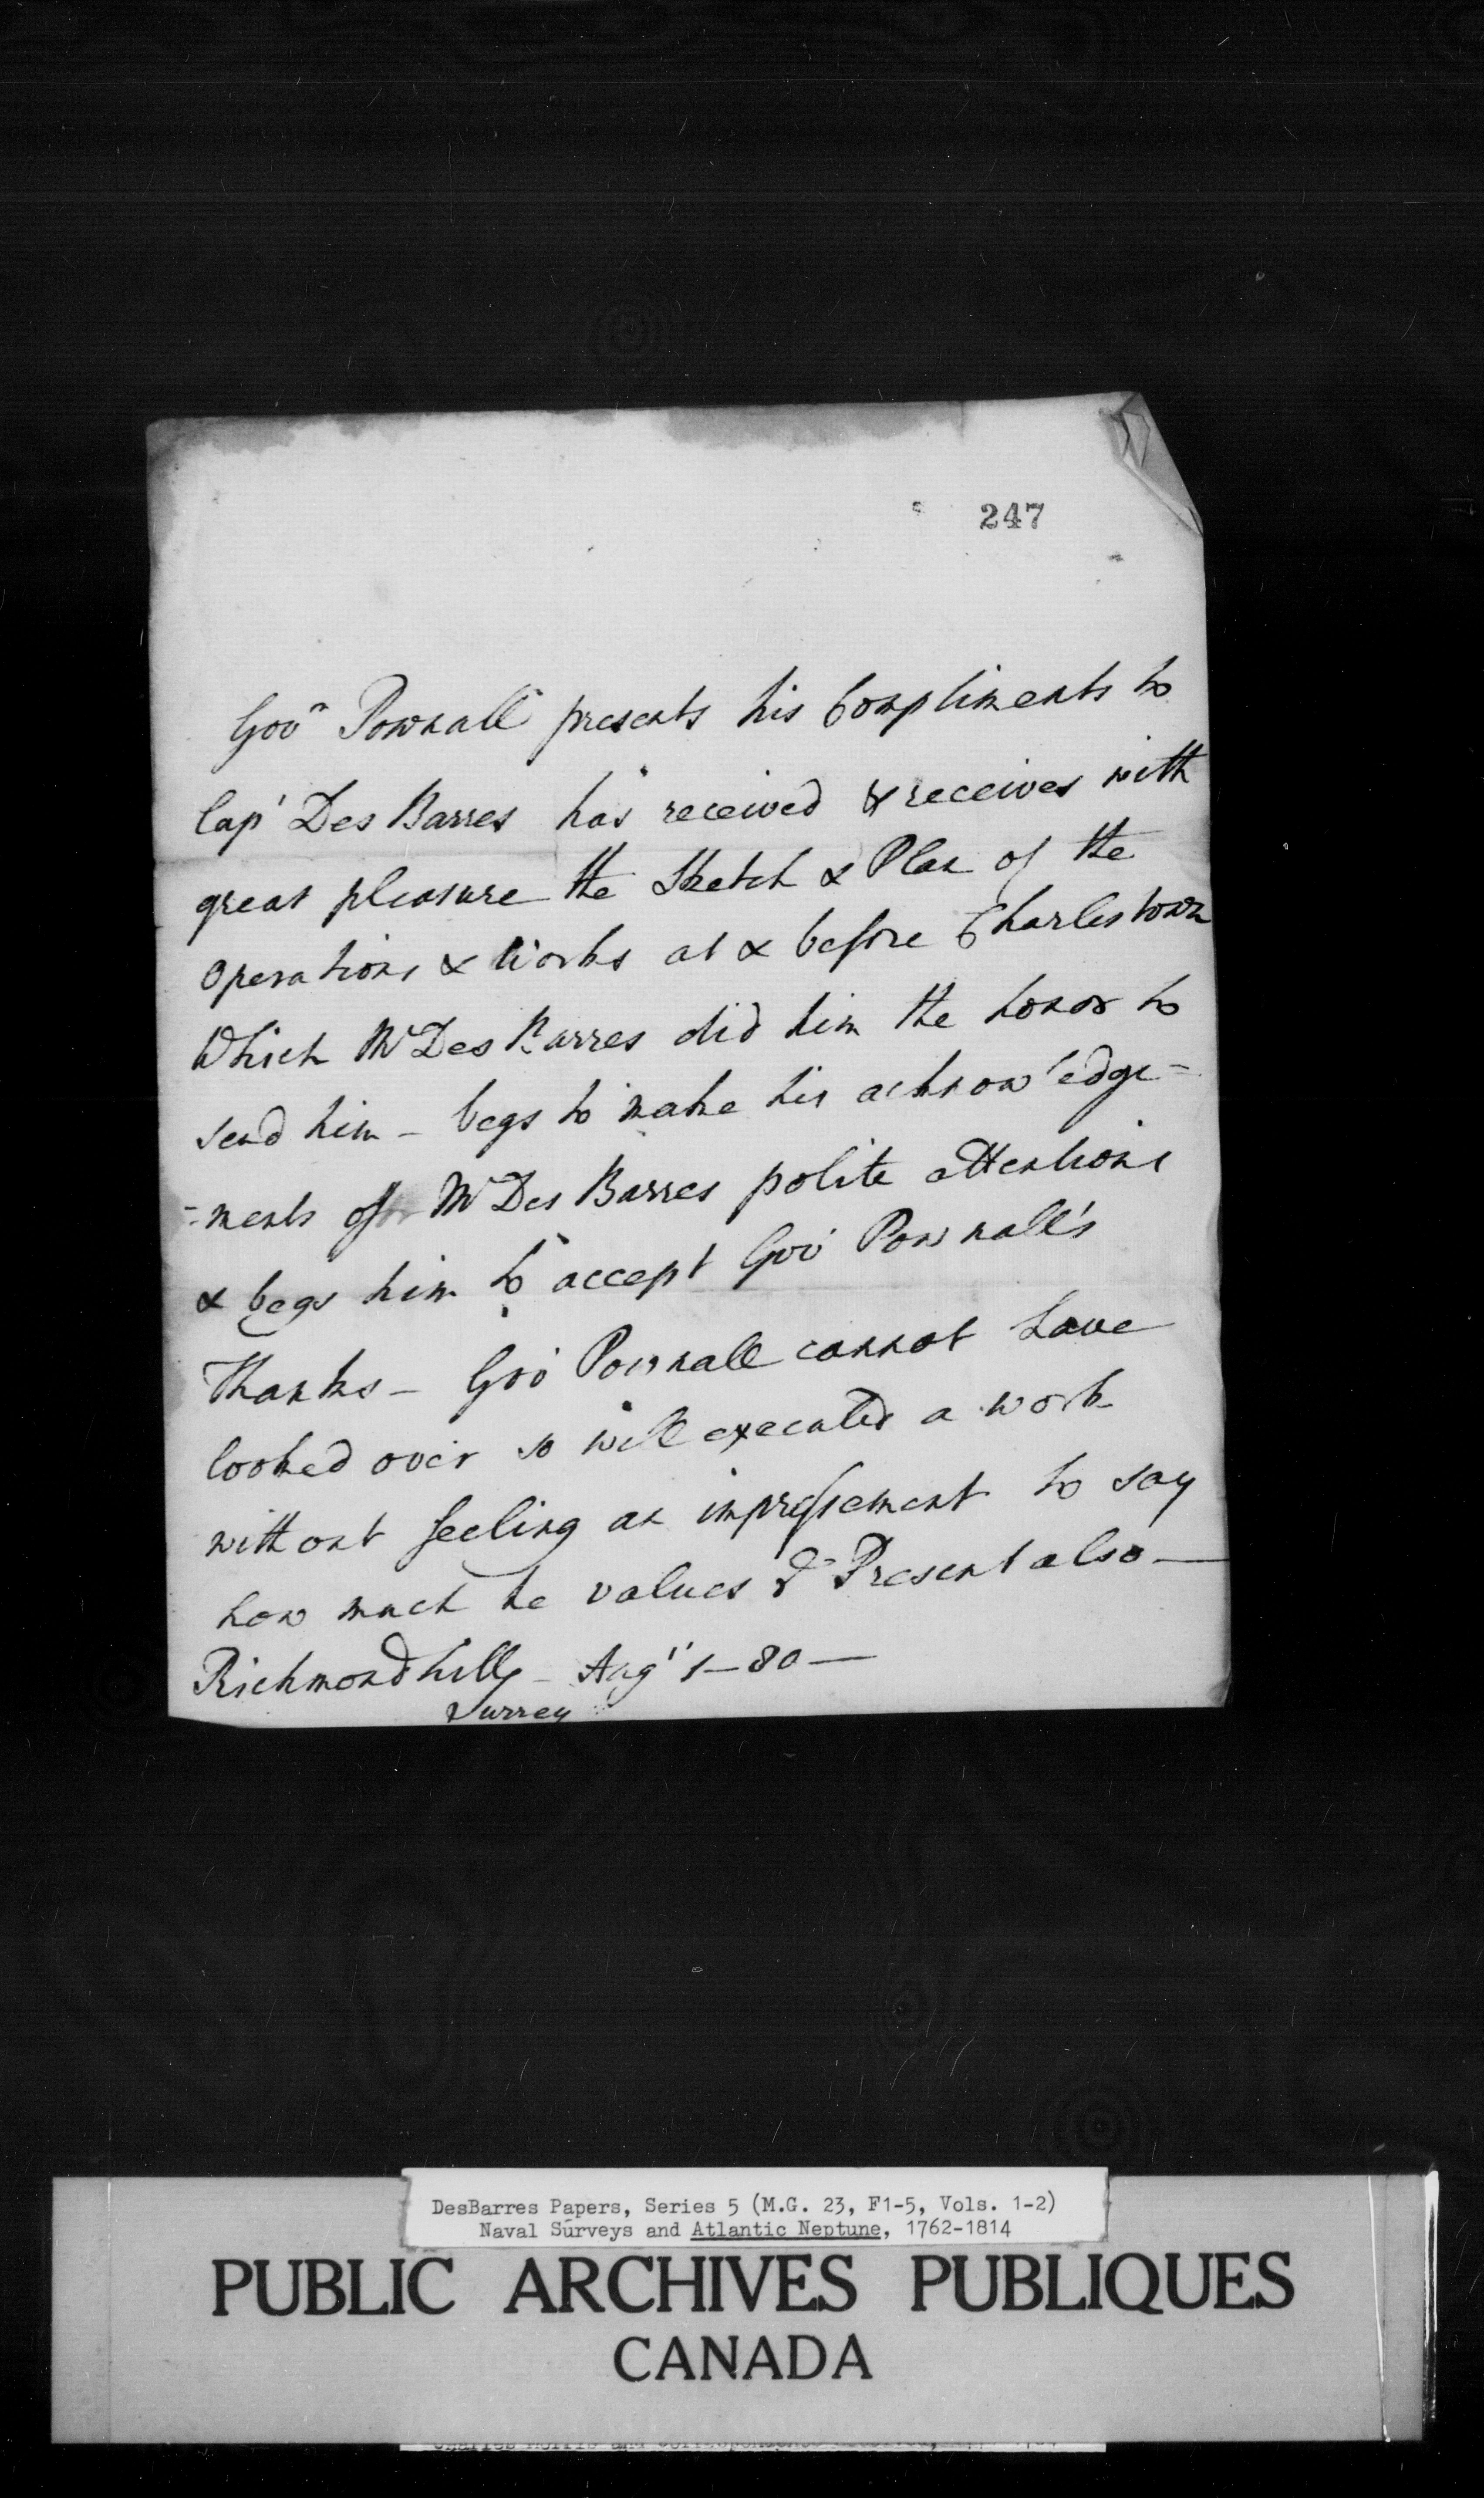 247
Gov.r Pownall presents his Compliments to
Capt Des Barres has received & receives with
great pleasure the Sketch & Plan of the
Operations & Works at & before Charlestown
Which Mr Des Barres did him the honor to
send him – begs to make his acknowledge=
=ments of Mr Des Barres polite attentions
& begs him to accept Gov Pownall's
Thanks – Gov Pownall cannot have
looked over so well executed a work
without feeling an impressement to say
how much he values ye Present also —
Richmondhill – Augt 1 – 80 —
Surrey
DesBarres Papers, Series 5 (M.G. 23, F1-5, Vols. 1-2)
Naval Surveys and Atlantic Neptune, 1762-1814
PUBLIC ARCHIVES PUBLIQUES
CANADA